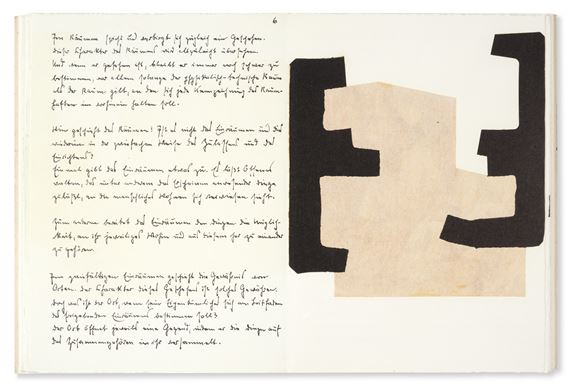 6
Im Räumen spricht und verbirgt sich zugleich ein Geschehen.
Dieser Charakter des Räumens wird allzuleicht übersehen.
Und wenn er gesehen ist, bleibt er immer noch schwer zu
bestimmen, vor allem solange der physikalisch-technische Raum
als der Raum gilt, an den sich jede Kennzeichnung des Raum-
haften im vorhinein halten soll.
Wie geschieht das Räumen? Ist es nicht das Einräumen und dies
wiederum in der zweifachen Weise des Zulassens und des
Einrichtens?
Einmal gibt das Einräumen etwas zu. Es lässt Offenes
walten, das unter anderem das Erscheinen anwesender Dinge
zulässt, an die menschliches Wohnen sich verwiesen sieht.
Zum anderen bereitet das Einräumen den Dingen die Möglich-
keit, an ihr jeweiliges Wohin und aus diesem her zu einander
zu gehören.
Im zwiefältigen Einräumen geschieht die Gewährnis von
Orten. Der Charakter dieses Geschehens ist solches Gewähren.
Doch was ist der Ort, wenn sein Eigentümliches sich am Leitfaden
des freigebenden Einräumens bestimmen soll?
Der Ort öffnet jeweils eine Gegend, indem er die Dinge auf
das Zusammengehören in ihr versammelt.